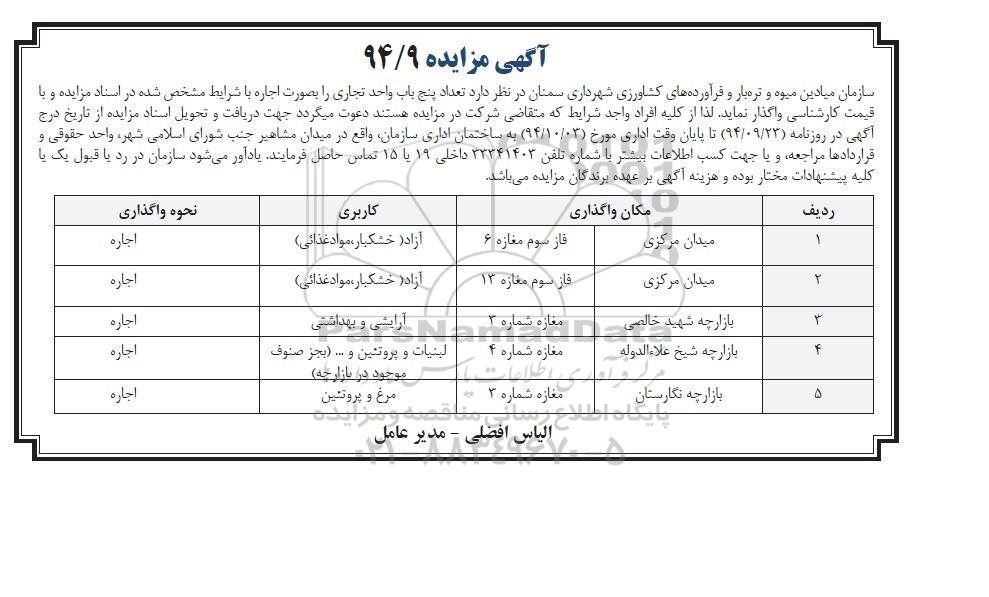 آگهی مزایده ۹۴/۹
سازمان میادین میوه و تره‌بار و فرآورده‌های کشاورزی شهرداری سمنان در نظر دارد تعداد پنج باب واحد تجاری را بصورت اجاره با شرایط مشخص شده در اسناد مزایده و با
قیمت کارشناسی واگذار نماید. لذا از کلیه افراد واجد شرایط که متقاضی شرکت در مزایده هستند دعوت میگردد جهت دریافت و تحویل اسناد مزایده از تاریخ درج
آگهی در روزنامه (۹۴/۰۹/۲۳) تا پایان وقت اداری مورخ (۹۴/۱۰/۰۳) به ساختمان اداری سازمان، واقع در میدان مشاهیر جنب شورای اسلامی شهر، واحد حقوقی و
قراردادها مراجعه، و یا جهت کسب اطلاعات بیشتر با شماره تلفن ۳۳۳۴۱۴۰۳ داخلی ۱۹ یا ۱۵ تماس حاصل فرمایند. یادآور می‌شود سازمان در رد یا قبول یک یا
کلیه پیشنهادات مختار بوده و هزینه آگهی بر عهده برندگان مزایده می‌باشد.
ردیف مکان واگذاری کاربری نحوه واگذاری
۱ میدان مرکزی فاز سوم مغازه ۶ آزاد( خشکبار،موادغذائی) اجاره
۲ میدان مرکزی فاز سوم مغازه ۱۳ آزاد( خشکبار،موادغذائی) اجاره
۳ بازارچه شهید خالصی مغازه شماره ۳ آرایشی و بهداشتی اجاره
ParsNamadData
۴ بازارچه شیخ علاءالدوله مغازه شماره ۴ لبنیات و پروتئین و ... (بجز صنوف
موجود در بازارچه) اجاره
۵ بازارچه نگارستان مغازه شماره ۳ مرغ و پروتئین اجاره
پایگاه اطلاع رسانی مناقصه و مزایده
الیاس افضلی - مدیر عامل
۰۲۱-۸۸۳۴۹۶۷۰-۵